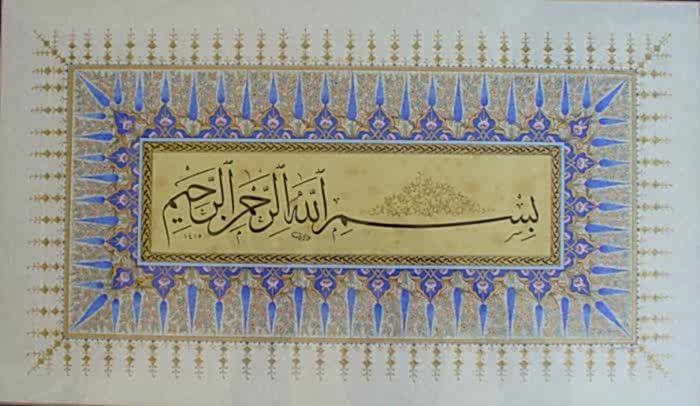 بسم الله الرحمن الرحيم
١٤١٥